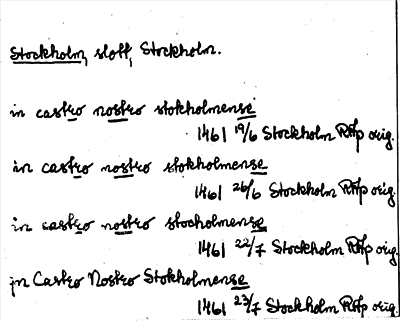 Stockholm, slott, Stockholm.
in castro nostro stokholmense
1461 19/6 Stockholm RAp orig.
in castro nostro stokholmense
1461 26/6 Stockholm RAp orig.
in castro nostro stocholmense
1461 22/7 Stockholm RAp orig.
jn Castro Nostro Stokholmense
1461 23/7 Stockholm RAp orig.